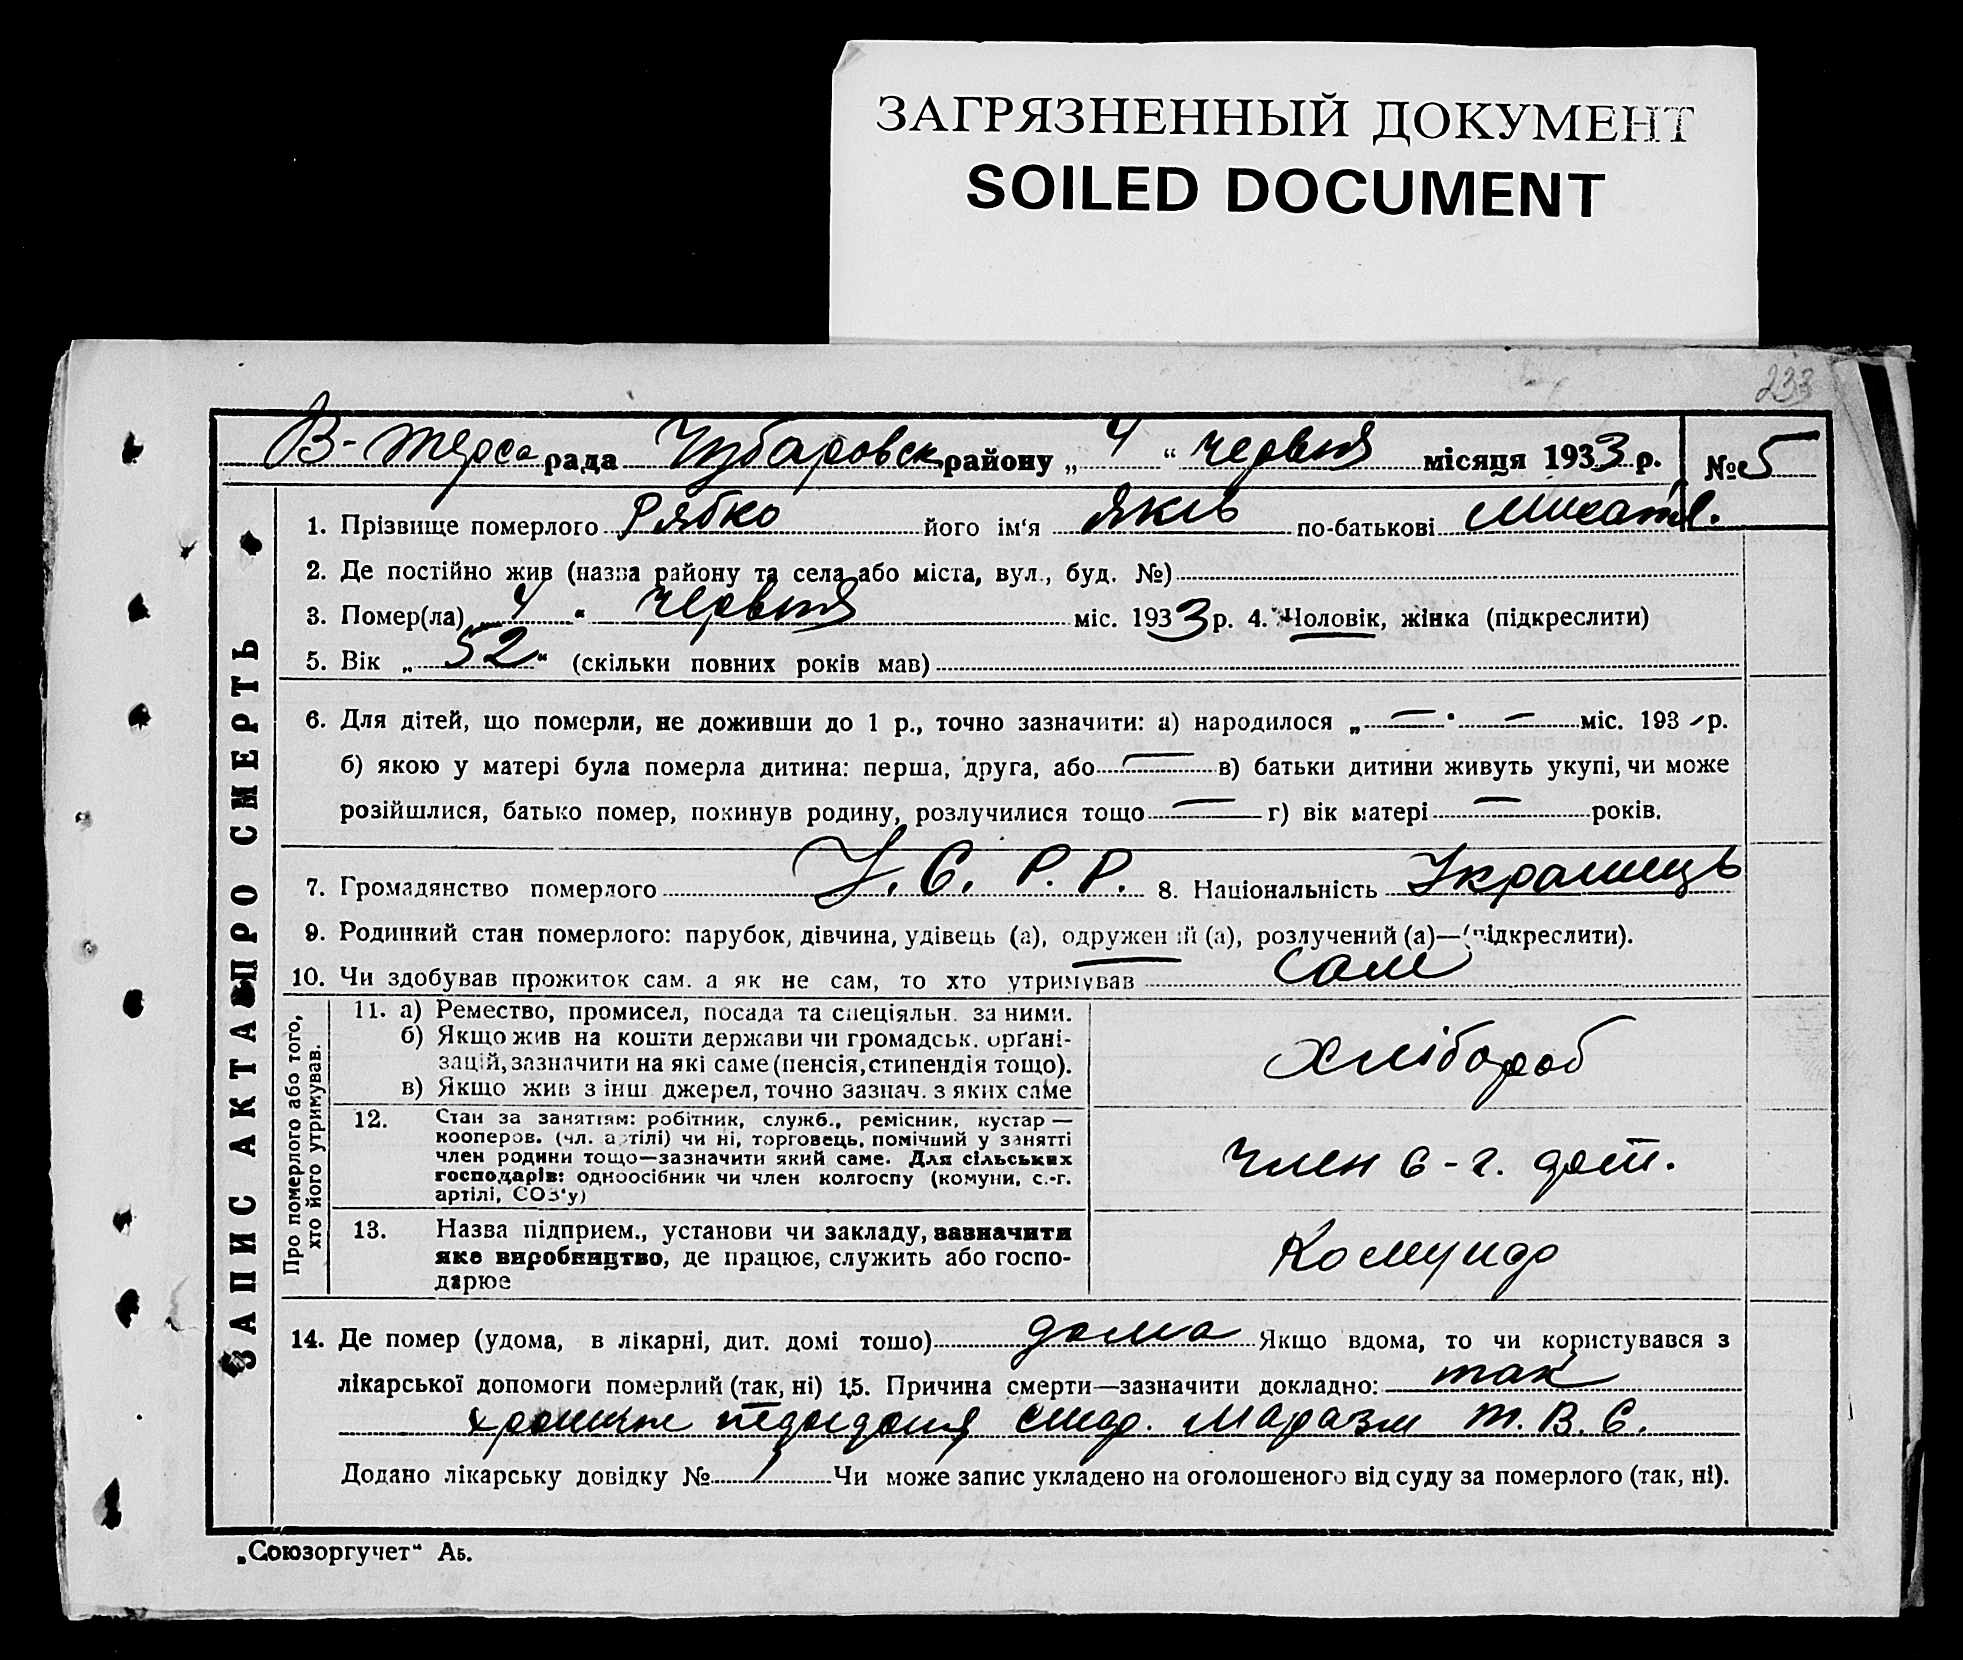 ЗАГРЯЗНЕННЫЙ ДОКУМЕНТ
SOILED DOCUMENT
233
В-Терса рада Чубаровск. району „ 4 “ червня місяця 1933 р. № 5
ЗАПИС АКТА ПРО СМЕРТЬ
1. Прізвище померлого Рябко його ім‘я Яків по-батькові Михайл.
2. Де постійно жив (назва району та села або міста, вул., буд. №)
3. Помер(ла) „ 4 “ червня міс. 1933 р. 4. Чоловік, жінка (підкреслити)
5. Вік „ 52 “ (скільки повних років мав)
6. Для дітей, що померли, не доживши до 1 р., точно зазначити: а) народилося „ — “ — міс. 193 р.
б) якою у матері була померла дитина: перша, друга, або — в) батьки дитини живуть укупі, чи може
розійшлися, батько помер, покинув родину, розлучилися тощо — г) вік матері — років.
7. Громадянство померлого У. С. Р. Р. 8. Національність Українець
9. Родинний стан померлого: парубок, дівчина, удівець (а), одружений (а), розлучений (а)—(підкреслити).
10. Чи здобував прожиток сам, а як не сам, то хто утримував сам
Про померлого або того,
хто його утримував.
11. а) Ремество, промисел, посада та спеціяльн. за ними.
б) Якщо жив на кошти держави чи громадськ. орґані-
зацій, зазначити на які саме (пенсія, стипендія тощо).
в) Якщо жив з інш джерел, точно зазнач. з яких саме
хлібороб
12. Стан за заняттям: робітник, служб., ремісник, кустар—
кооперов. (чл. артілі) чи ні, торговець, помічний у занятті
член родини тощо—зазначити який саме. Для сільських
господарів: одноосібник чи член колгоспу (комуни, с.-г.
артілі, СОЗ‘у)
член с-г. арт.
13. Назва підприєм., установи чи закладу, зазначити
яке виробництво, де працює, служить або госпо-
дарює
14. Де помер (удома, в лікарні, дит. домі тошо) дома Якщо вдома, то чи користувався з
лікарської допомоги померлий (так, ні) 15. Причина смерти—зазначити докладно: так
маразм Т. В. С.
Додано лікарську довідку № Чи може запис укладено на оголошеного від суду за померлого (так, ні).
„Союзоргучет“ Аб.